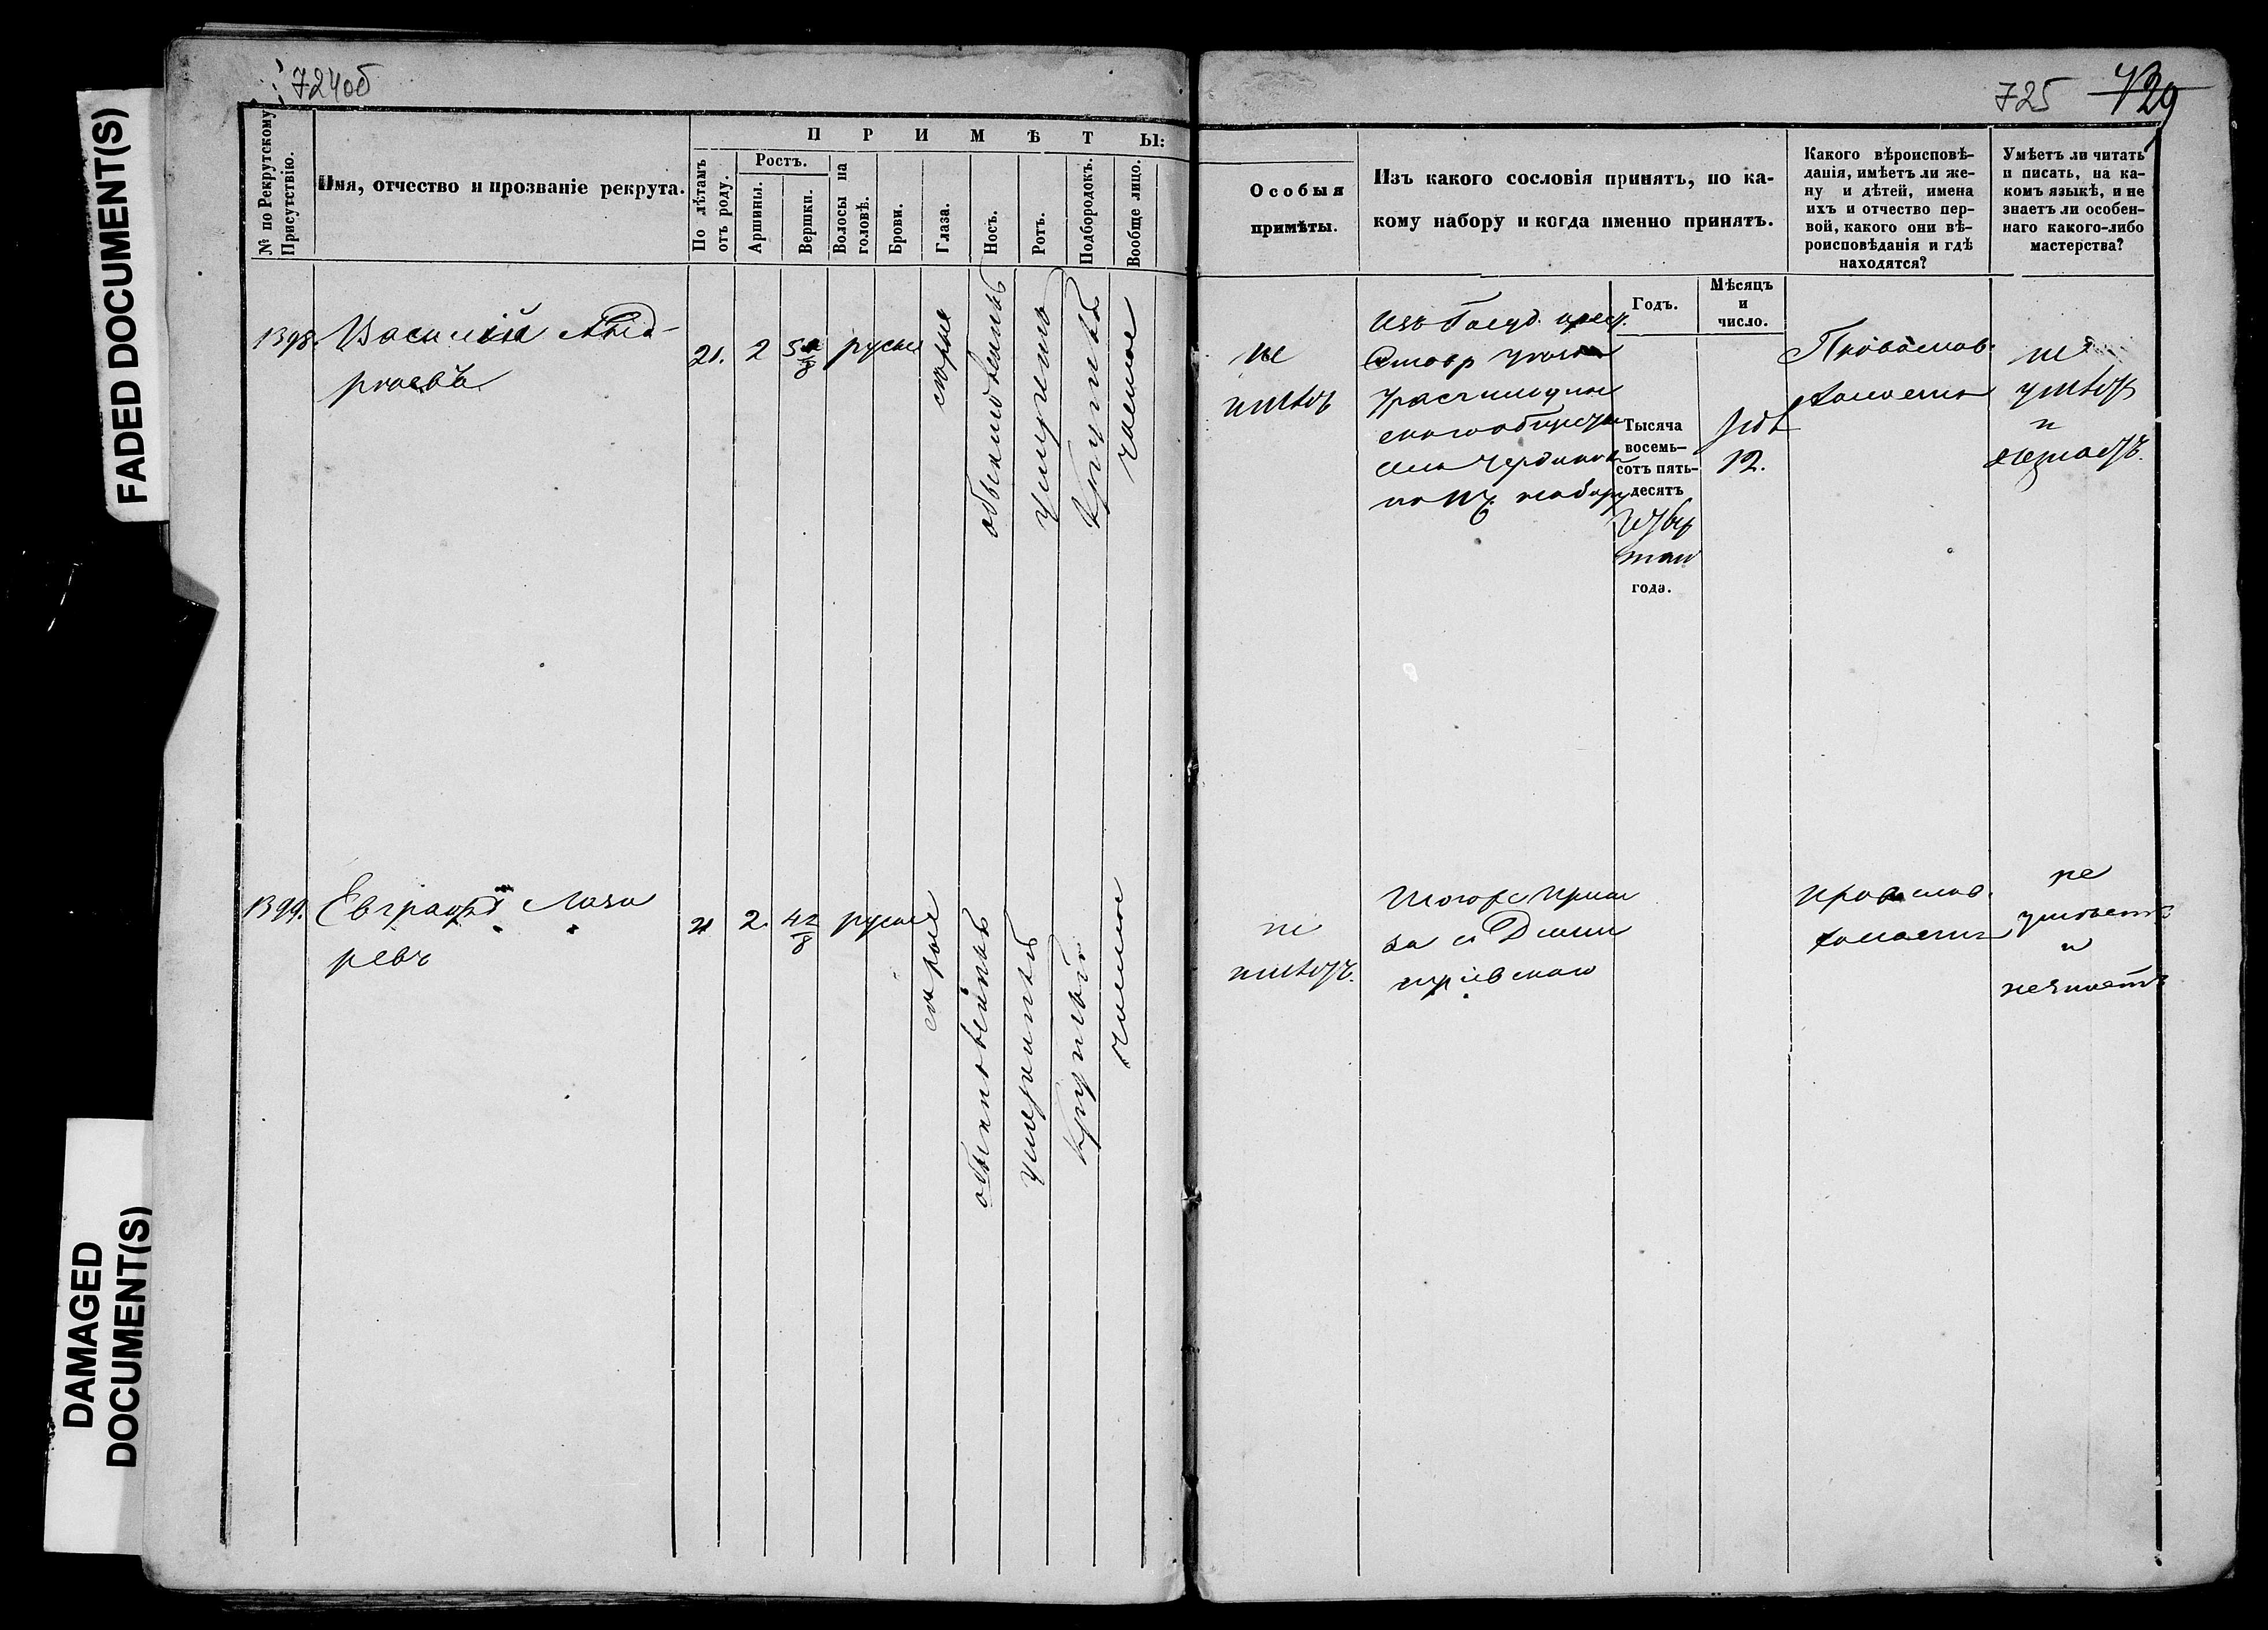 FADED DOCUMENT(S)
DAMAGED
DOCUMENT(S)
724об
№ по Рекрутскому
Присутствію.
Имя, отчество и прозваніе рекрута.
П Р И М Ѣ Т Ы:
По лѣтамъ
отъ роду.
Ростъ.
Аршины.
Вершки.
Волосы на
головѣ.
Брови.
Глаза.
Носъ.
Ротъ.
Подбородокъ.
Вообще лицо.
1398.
Василій
21.
2
русые
сѣрые
обыкновенный
умѣренный
круглый
чистое
1399.
Евграфъ Лаза
ревъ
21
2.
4 2/8
русые
сѣрые
обыкновенный
умѣренный
круглый
чистое
725
Особыя
примѣты.
Изъ какого сословія принятъ, по ка-
кому набору и когда именно принятъ.
Какого вѣроисповѣ-
данія, имѣетъ ли же-
ну и дѣтей, имена
ихъ и отчество пер-
вой, какого они вѣ-
роисповѣданія и гдѣ
находятся?
Умѣетъ ли читать
и писать, на ка-
комъ языкѣ, и не
знаетъ ли особен-
наго какого-либо
мастерства?
Годъ.
Мѣсяцъ
и
число.
не
имѣетъ
Изъ Госуд. крест.
Ставр
села
по набору
Тысяча
восемь-
сотъ пять-
десятъ
года.
12.
Православ.
холостъ
не
умѣетъ
и
незнаетъ.
не
имѣетъ.
Тогоже
за с Дми
тріевскаго
православ.
холостъ
не
умѣетъ
и
незнаетъ